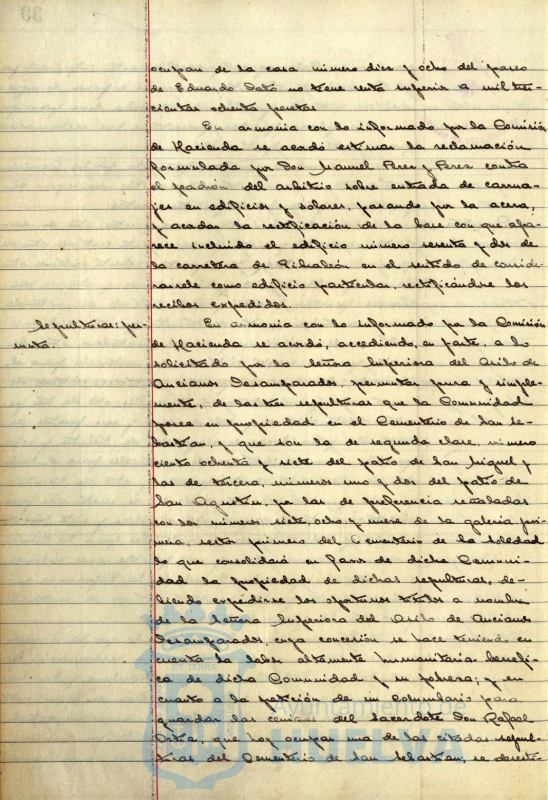 ocupan de la casa número diez y ocho del paseo
de Eduardo Dato no tiene renta superior a mil tres-
cientas ochenta pesetas
En armonia con lo informado por la Comisión
de Hacienda se acordó estimar la reclamación
formulada por Don Manuel Perez y Perez contra
el padrón del arbitrio sobre entrada de carrua-
jes en edificios y solares, pasando por la acera,
y acordar la rectificación de la base con que apa-
rece incluido el edificio número sesenta y dos de
la carretera de Gibraleón en el sentido de conside-
rarsele como edificio particular, rectificándose los
recibos expedidos.
Sepulturas: per-
muta.
En armonia con lo informado por la Comisión
de Hacienda se acordó, accediendo, en parte, a lo
solicitado por la Señora Superiora del Asilo de
Ancianos Desamparados, permutar pura y simple-
mente, de las tres sepulturas que la Comunidad
posee en propiedad en el Cementerio de San Se-
bastian, y que son la de segunda clase, número
ciento ochenta y siete del patio de San Miguel y
las de tercera, números uno y dos del patio de
San Agustin, por las de preferencia señaladas
con los números siete, ocho y nueve de la galeria pri-
mera, sector primero del Cementerio de la Soledad
lo que consolidará en favor de dicha Comuni-
dad la propiedad de dichas sepulturas, de-
biendo expedirse los oportunos titulos a nombre
de la Señora Superiora del Asilo de Ancianos
Desamparados, cuya concesión se hace teniendo en
cuenta la labor altamente humanitaria benefi-
ca de dicha Comunidad y su pobreza; y en
cuanto a la petición de un columbario para
guardar las cenizas del sacerdote Don Rafael
Ortiz, que hoy ocupan una de las citadas sepul-
turas del Cementerio de San Sebastian, se desesti-
Ayuntamiento de
HUELVA